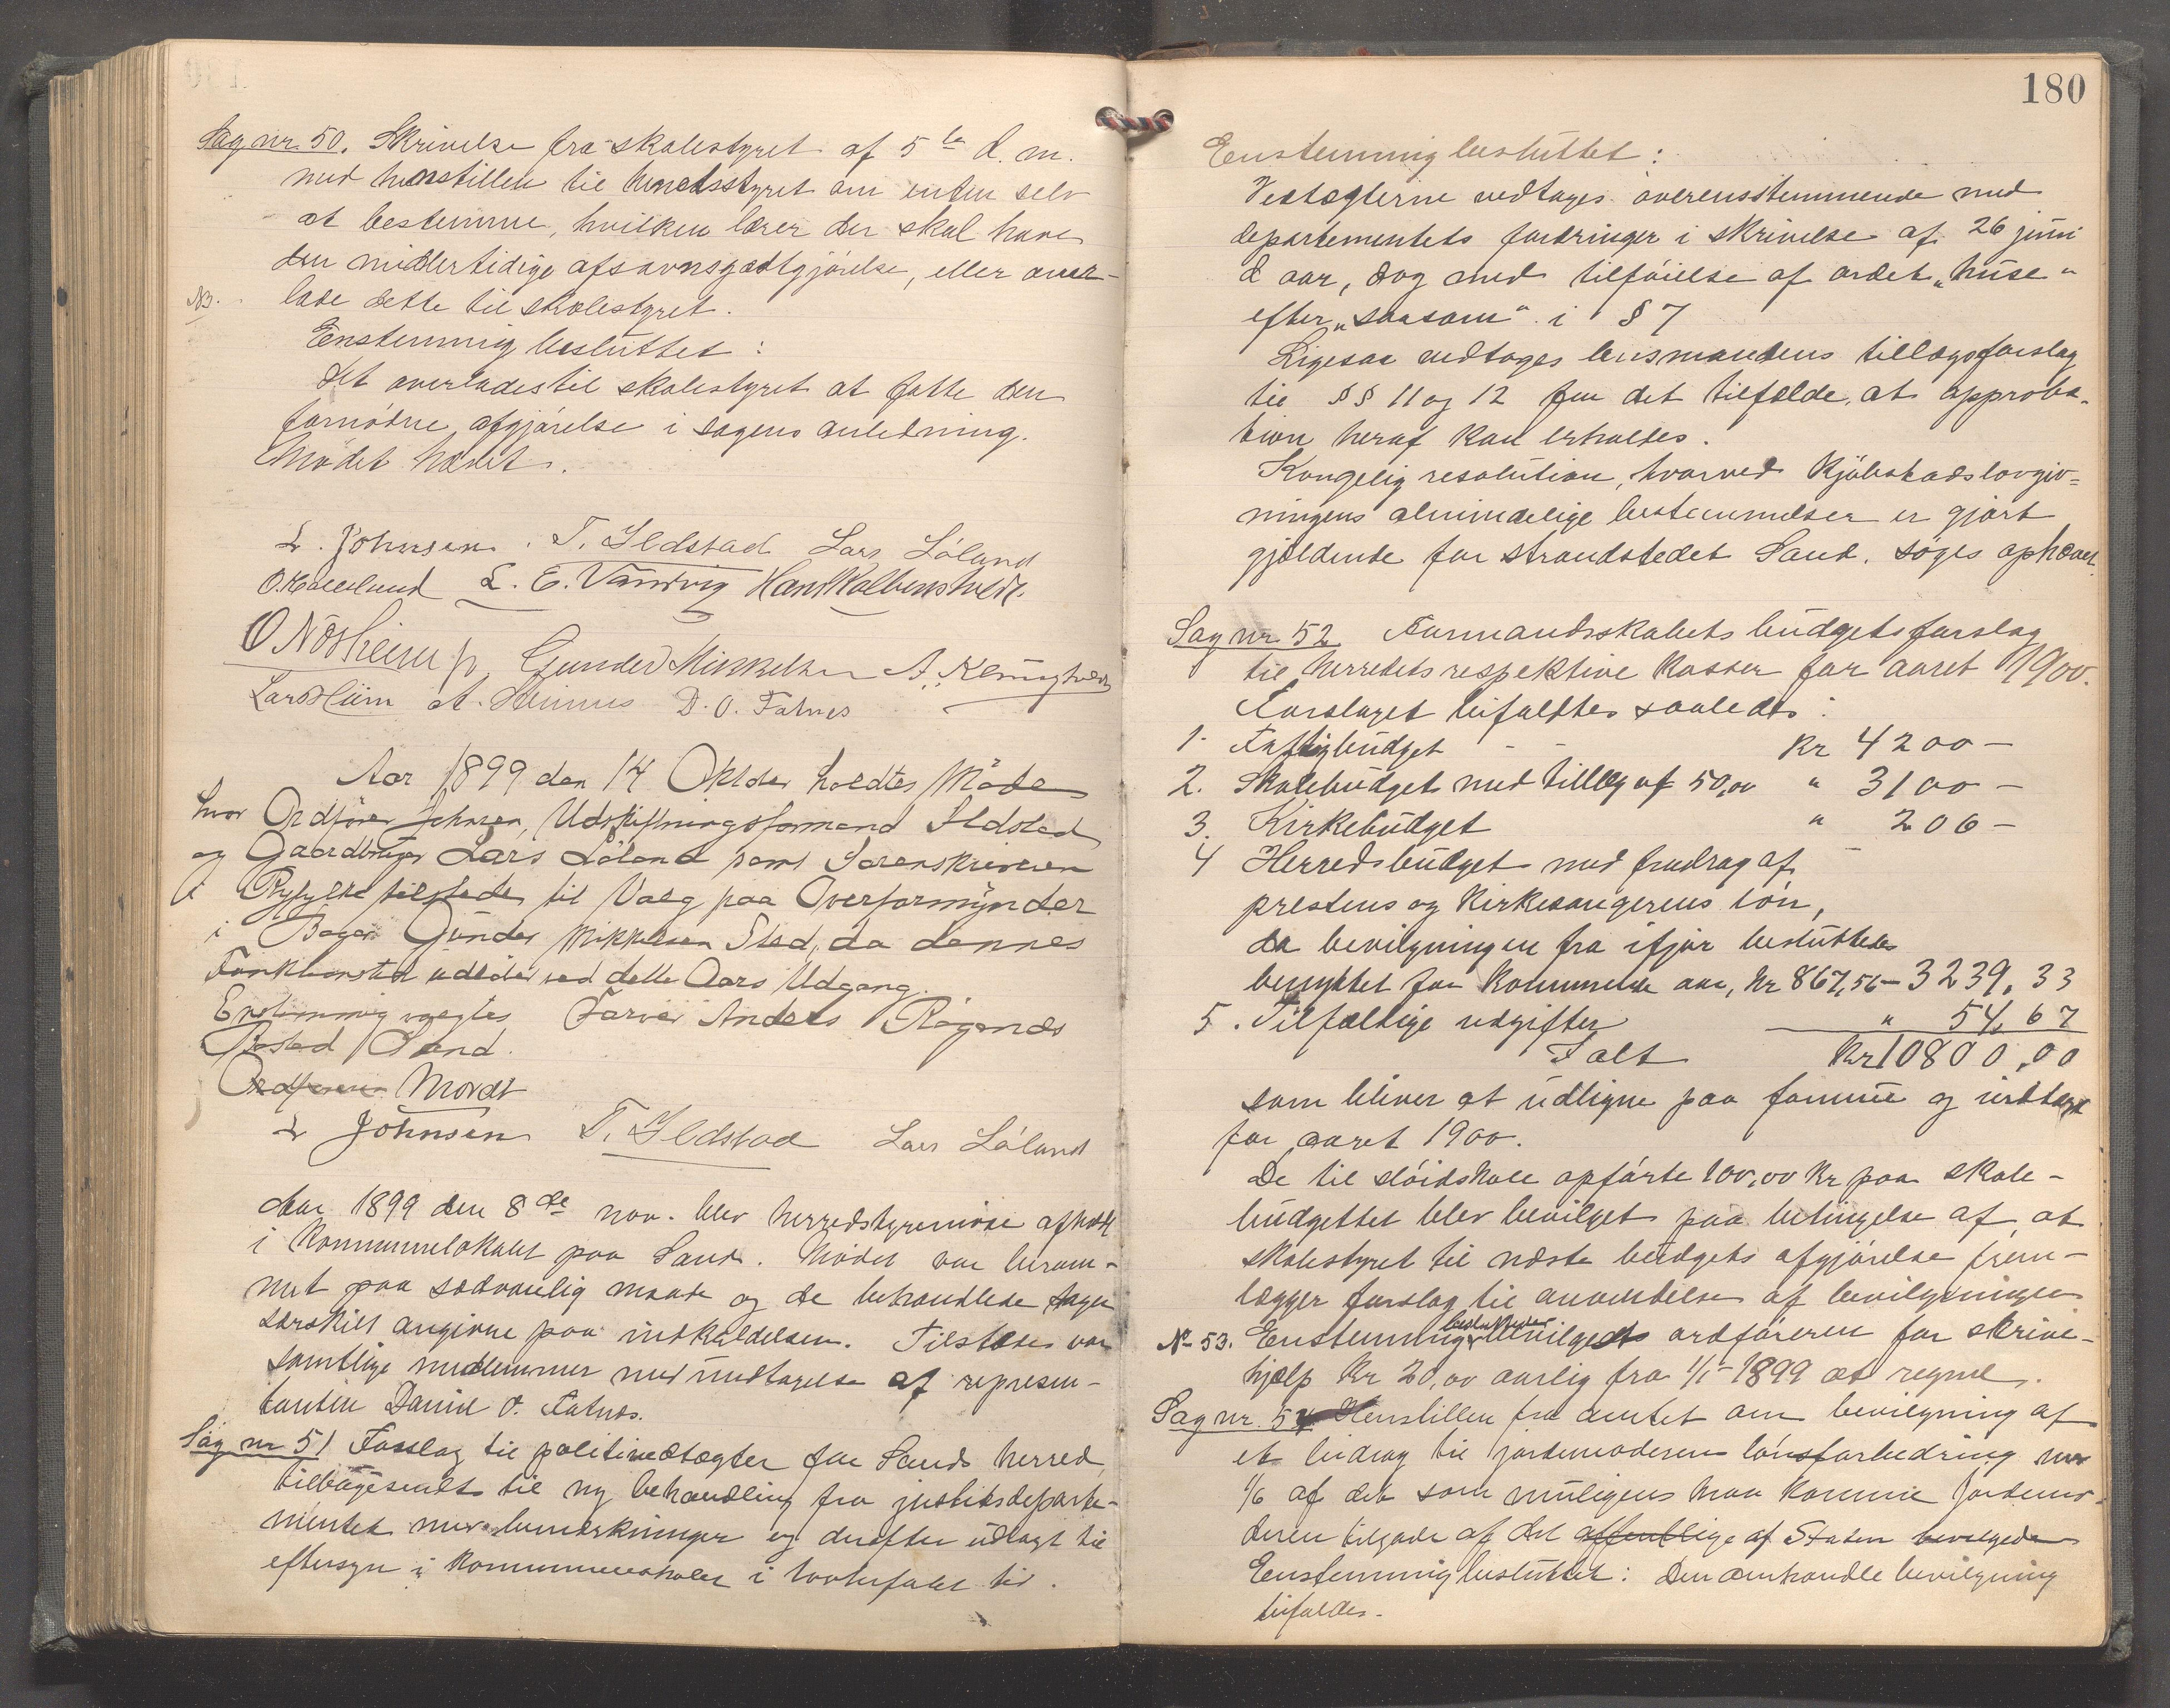 Sag nr. 50. Skrivelse fra skolestyret af 5te d. m.
med henstillen til herredsstyret om enten selv
at bestemme, hvilken lærer der skal have
den midlertidige afsavnsgodtgjörelse, eller over-
NB. lade dette til skolestyret.
Enstemmig besluttet:
Det overlades til skolestyret at fatte den
fornödne afgjörelse i sagens anledning.
Mödet hævet.
L. Johnsen. T. Ildstad Lars Löland
L. E. Vandvig Hans Kolbenstvedt.
O Nösheim jr. Gunder Mikkelsen A. Klungtvedt
Lars Hiim A. Heimnes D. O. Fatnes
Aar 1899 den 14 Oktober holdtes Möde
hvor Ordförer Johnsen, Udskiftningsformand Ildstad
og Gaardbruger Lars Löland samt Sorenskriveren
i Ryfylke tilstede til Valg paa Overformynder
i Bager Gunder Mikkelsen Sted, da dennes
Funktionstid udlöber ved dette Aars Udgang.
Enstemmig valgtes Farver Anders Rögenes
Bosted Sand.
Ordföreren Mordt
L Johnsen T. Ildstad Lars Löland
Aar 1899 den 8de nov. blev herredsstyremöde afholdt
i Kommunelokalet paa Sand. Mödet var beram-
met paa sædvanlig maade og de behandlede sager
særskilt angivne paa indkaldelsen. Tilstede var
samtlige medlemmer med undtagelse af represen-
tanten Daniel O. Fatnes.
Sag nr 51 Forslag til politivedtægter for Sands herred,
tilbagesendt til ny behandling fra justitsdeparte-
mentet med bemærkninger og derefter udlagt til
eftersyn i Kommunelokalet i lovbefalet tid.
180
Enstemmig besluttet:
Vedtægterne vedtages overensstemmende med
departementets fordringer i skrivelse af 26 juni
d aar, dog med tilföielse af ordet "huse"
efter "saasom" i § 7
Ligesaa vedtages lensmandens tillægsforslag
til §§ 11 og 12 for det tilfælde, at approba-
tion heraf kan erholdes.
Kongelig resolution, hvorved Kjöbstadslovgiv=
ningens almindelige bestemmelser er gjort
gjældende for strandstedet Sand, söges ophævet.
Sag nr 52 Formandsskabets budgetsforslag
til herredets respektive kasser for aaret 1900.
Forslaget bifaldtes saaledes:
1. Fattigbudget - - Kr 4200 -
2. Skolebudget med tillæg af 50,00 " 3100 -
3. Kirkebudget " 206 -
4 Herredsbudget med fradrag af
prestens og kirkesangerens lön,
da bevilgningen fra ifjor besluttedes
benyttet for kommende aar, Kr 867,56 - 3239,33
5. Tilfældige udgifter " 54,67
Ialt Kr 10800,00
som bliver at udligne paa formue og indtægt
for aaret 1900.
De til slöidskole opförte 100,00 Kr paa skole-
budgettet blev bevilget paa betingelse af, at
skolestyret til næste budgets afgjörelse frem-
lægger forslag til anvendelse af bevilgningen
No 53. Enstemmig besluttedes bevilget ordföreren for skrive-
hjælp Kr 20,00 aarlig fra 1/1 1899 at regne.
Sag nr. 54 Henstillen fra amtet om bevilgning af
et bidrag til jordemoderens lönsforbedring med
1/6 af det som muligens maa komme Jordemo-
deren tilgode af det offentlige af Staten bevilgede
Enstemmig besluttet: Den omhandle bevilgning
bifaldes.